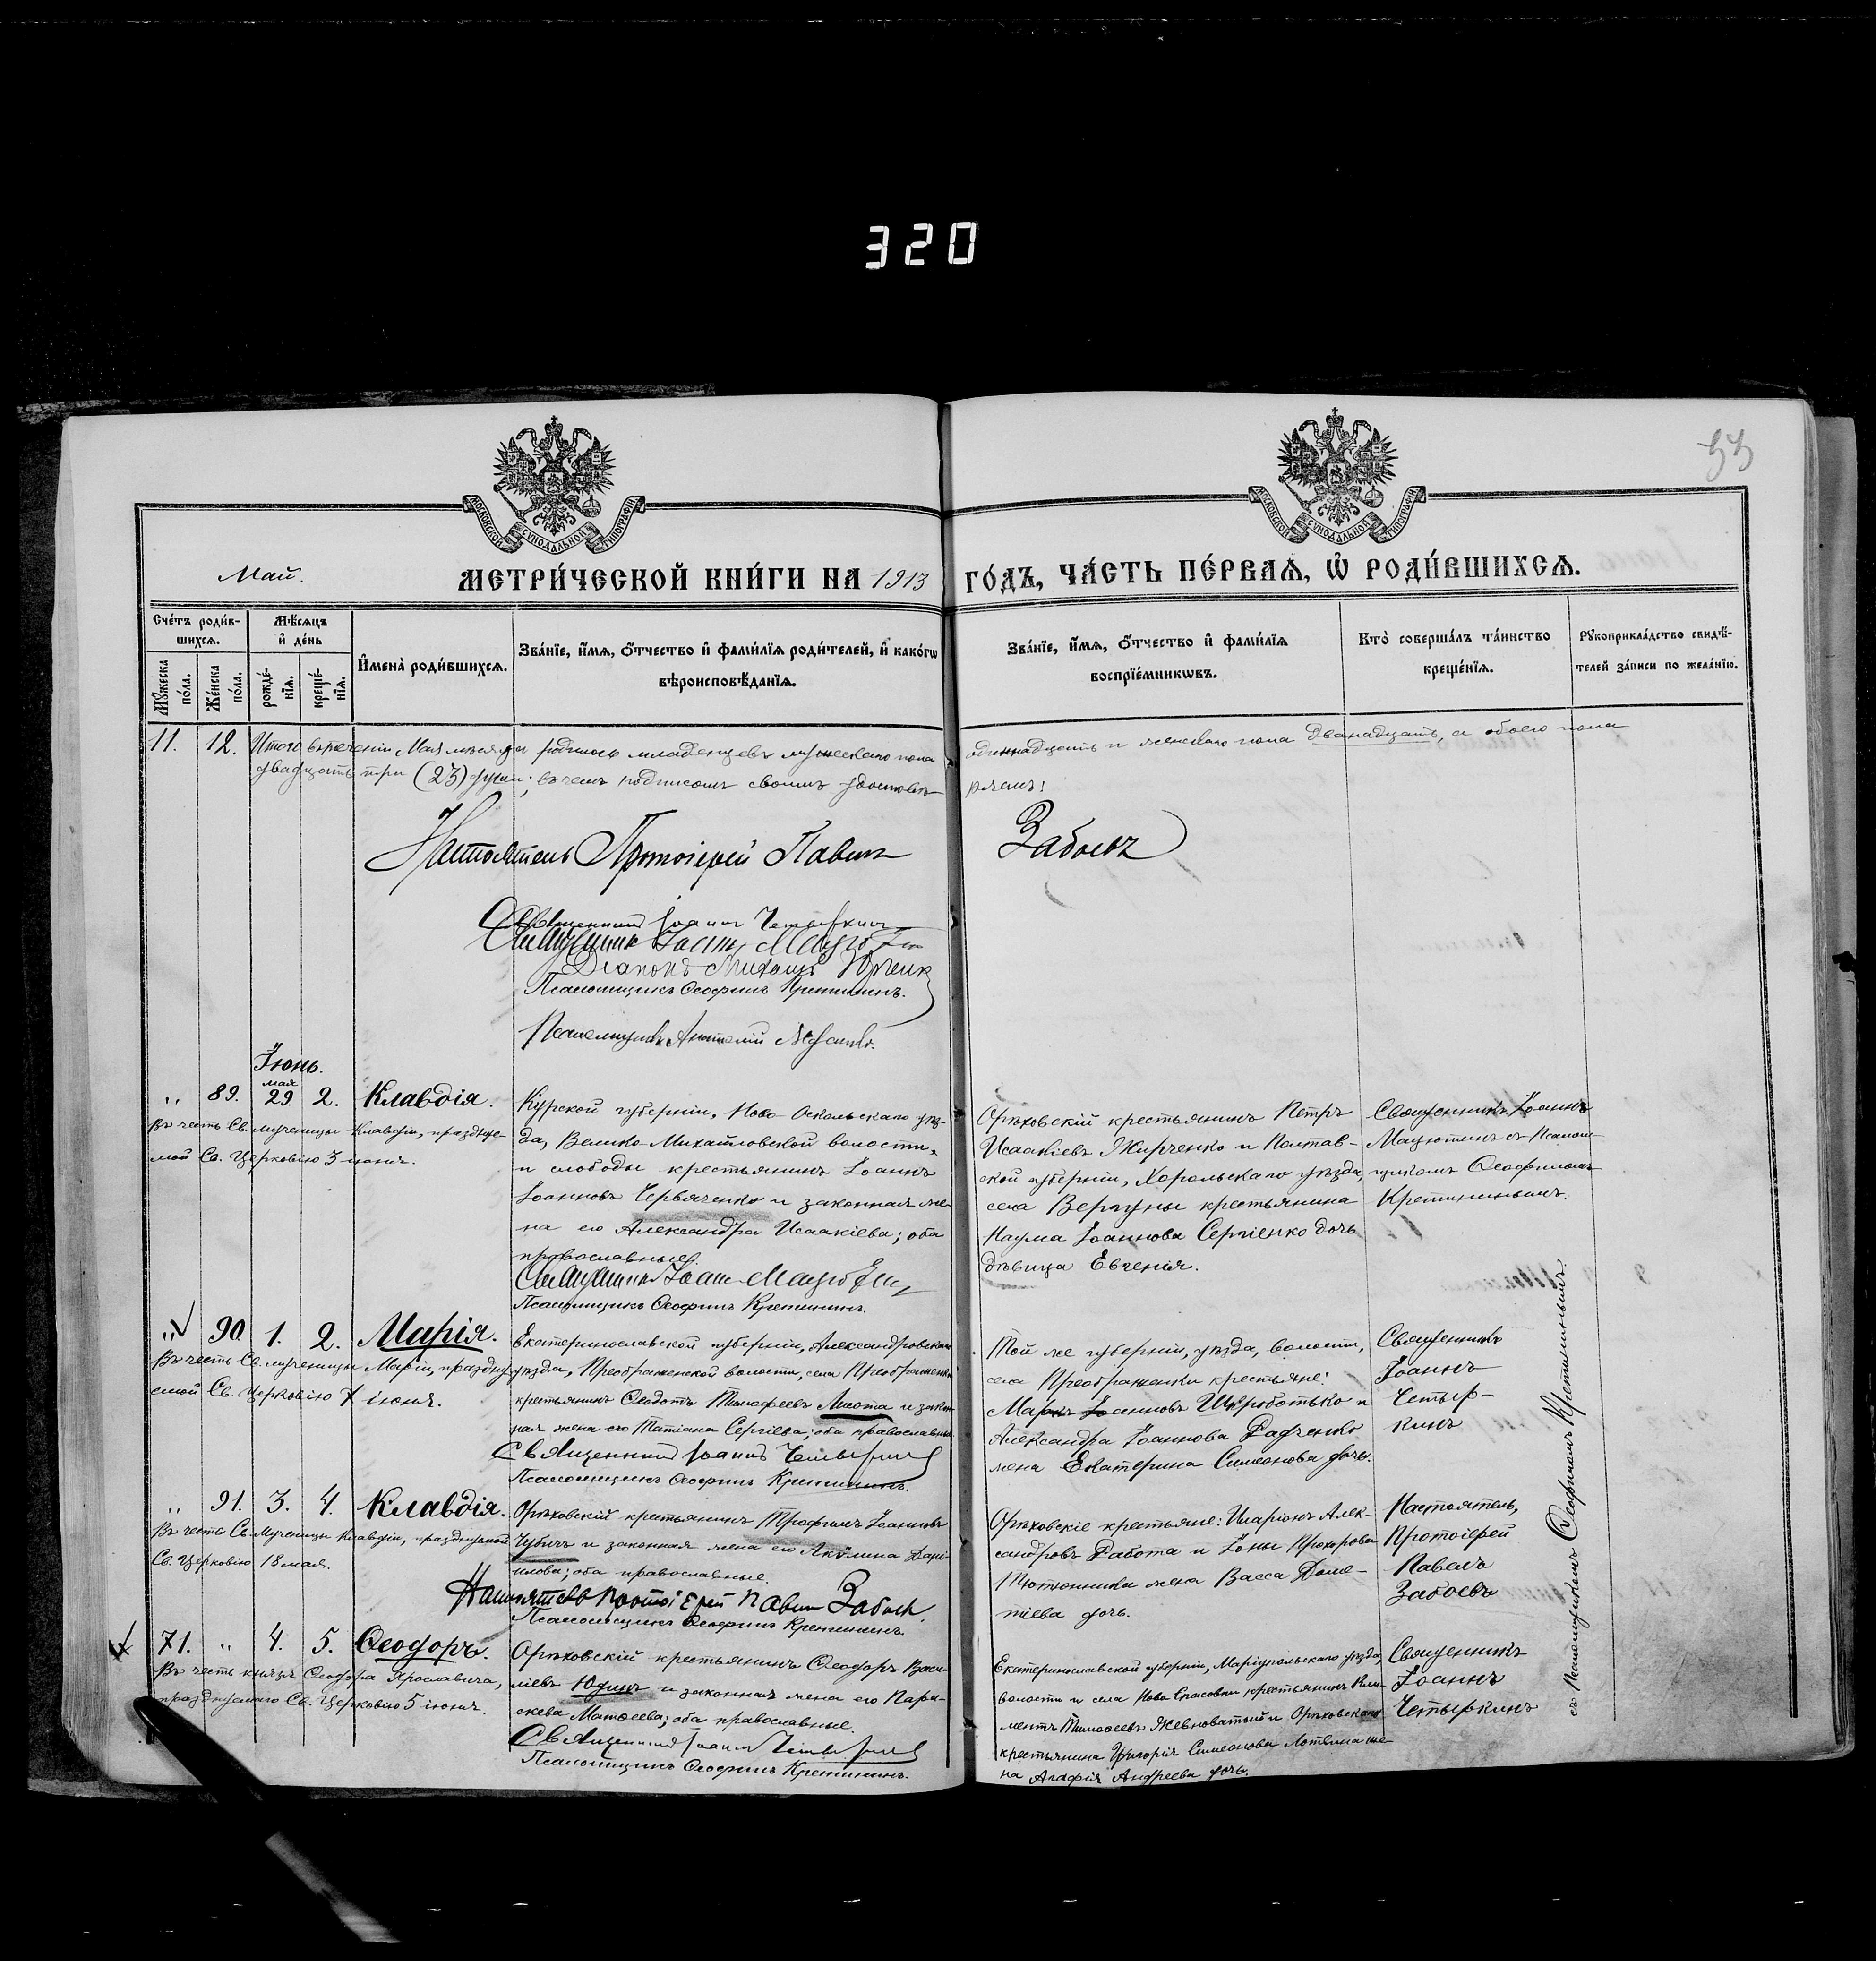 320
33
МОСКОВСКОЙ СѴНОДАЛЬНОЙ ТИПОГРАФІИ
МОСКОВСКОЙ СѴНОДАЛЬНОЙ ТИПОГРАФІИ
Май.
МЕТРИ́ЧЕСКОЙ КНИ́ГИ НА 1913 ГО́ДЪ, ЧА́СТЬ ПЕ́РВАѦ, Ѡ҆ РОДИ́ВШИХСѦ.
Сче́тъ роди́в-
шихсѧ.
Мѣ́сѧцъ
и҆ де́нь
Мꙋ́жеска по́ла.
Же́нска по́ла.
рожде́-нїѧ.
креще́-нїѧ.
И҆мена̀ роди́вшихсѧ.
Зва́нїе, и҆́мѧ, ѻ҆́тчество и҆ фами́лїѧ роди́телей, и҆ како́гѡ
вѣроисповѣ́данїѧ.
Зва́нїе, и҆́мѧ, ѻ҆́тчество и҆ фами́лїѧ
воспрїе́мникѡвъ.
Кто̀ соверша́лъ та́инство
креще́нїѧ.
Рꙋкоприкла́дство свидѣ́-
телей за́писи по жела́нїю.
11. 12. Итого въ теченіи Мая мѣсяца родилось младенцевъ мужескаго пола одиннадцать и женскаго пола двѣнадцать, а обоего пола
двадцать три (23) души; въ чемъ подписомъ своимъ удостовѣ-
ряемъ:
Настоятель Протоіерей Павелъ Забоевъ
Священникъ Іоаннъ Четыркинъ
Священникъ Іоаннъ Мацютинъ
Діаконъ Михаилъ
Псаломщикъ Ѳеофилъ Кретининъ.
Псаломщикъ
Іюнь.
„ 89. мая 29. 2. Клавдія.
Въ честь Св. мученицы Клавдіи, праздуе-
мой Св. Церковію 3 іюня.
Курской губерніи, Ново-Оскольскаго уѣз-
да, Велико-Михайловской волости,
и слободы крестьянинъ Іоаннъ
Іоанновъ Червяченко и законная же-
на его Александра Исаакіева; оба
православные.
Священникъ Іоаннъ Мацютинъ
Псаломщикъ Ѳеофилъ Кретининъ.
Орѣховскій крестьянинъ Петръ
Исаакіевъ Жирченко и Полтав-
ской губерніи, Хорольскаго уѣзда,
села Вергуны крестьянина
Наума Іоаннова Сергіенко дочь
дѣвица Евгенія.
Священникъ Іоаннъ
Мацютинъ съ Псалом-
щикомъ Ѳеофиломъ
Кретининымъ.
„ 90. 1. 2. Марія.
Въ честь Св. мученицы Маріи, праздну-
емой Св. Церковію 7 іюня.
Екатеринославской губерніи, Александровскаго
уѣзда, Преображенской волости, села Преображенки
крестьянинъ Ѳеодотъ Тимофеевъ Лисота и закон-
ная жена его Татіана Сергіева; оба православные.
Священникъ Іоаннъ Четыркинъ
Псаломщикъ Ѳеофилъ Кретининъ.
Той же губерніи, уѣзда, волости,
села Преображенки крестьяне:
Маркъ Іоанновъ Щеработько и
Александра Іоаннова Радченко
жена Екатерина Симеонова дочь.
Священникъ
Іоаннъ
Четыр-
кинъ
„ 91. 3. 4. Клавдія.
Въ честь Св. Мученицы Клавдіи, празднуемой
Св. Церковію 18 мая.
Орѣховскій крестьянинъ Трофимъ Іоанновъ
Чубичъ и законная жена его Акилина Дані-
илова; оба православные.
Настоятель Протоіерей Павелъ Забоевъ.
Псаломщикъ Ѳеофилъ Кретининъ.
Орѣховскіе крестьяне: Иларіонъ Алек-
сандровъ Работа и Іоны Прохорова
Тютюнника жена Васса Доме-
тіева дочь.
Настоятель,
Протоіерей
Павелъ
Забоевъ
71. „ 4. 5. Ѳеодоръ.
Въ честь князя Ѳеодора Ярославича,
празднуемаго Св. Церковію 5 іюня.
Орѣховскій крестьянинъ Ѳеодоръ Васи-
ліевъ Юдинъ и законная жена его Пара-
скева Матѳеева; оба православные.
Священникъ Іоаннъ Четыркинъ
Псаломщикъ Ѳеофилъ Кретининъ.
Екатеринославской губерніи, Маріупольскаго уѣзда,
волости и села Ново Спасовки крестьянинъ Кли-
ментъ Тимоѳеевъ Жевноватый и Орѣховскаго
крестьянина Григорія Симеонова Лотвина же-
на Агафія Андреева дочь.
Священникъ
Іоаннъ
Четыркинъ
съ Псаломщикомъ Ѳеофиломъ Кретининымъ.